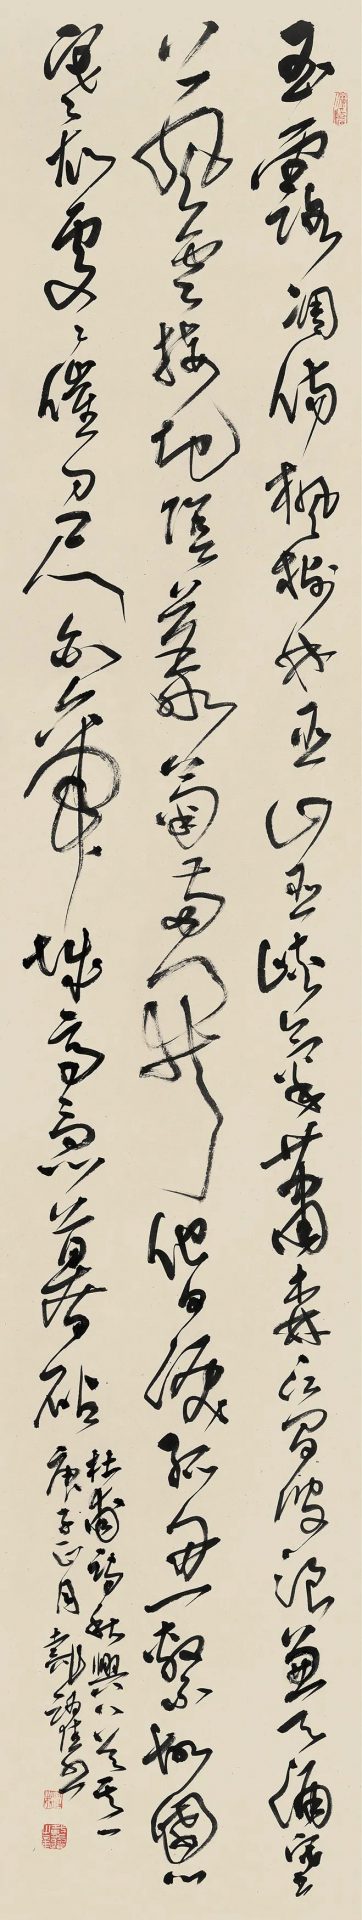 玉露凋傷楓樹林巫山巫峽氣蕭森江間波浪兼天涌塞
上風雲接地陰叢菊兩開他日淚孤舟一繫故園心
寒衣處々催刀尺白帝城高急暮砧
杜甫詩秋興八首其一
庚子正月